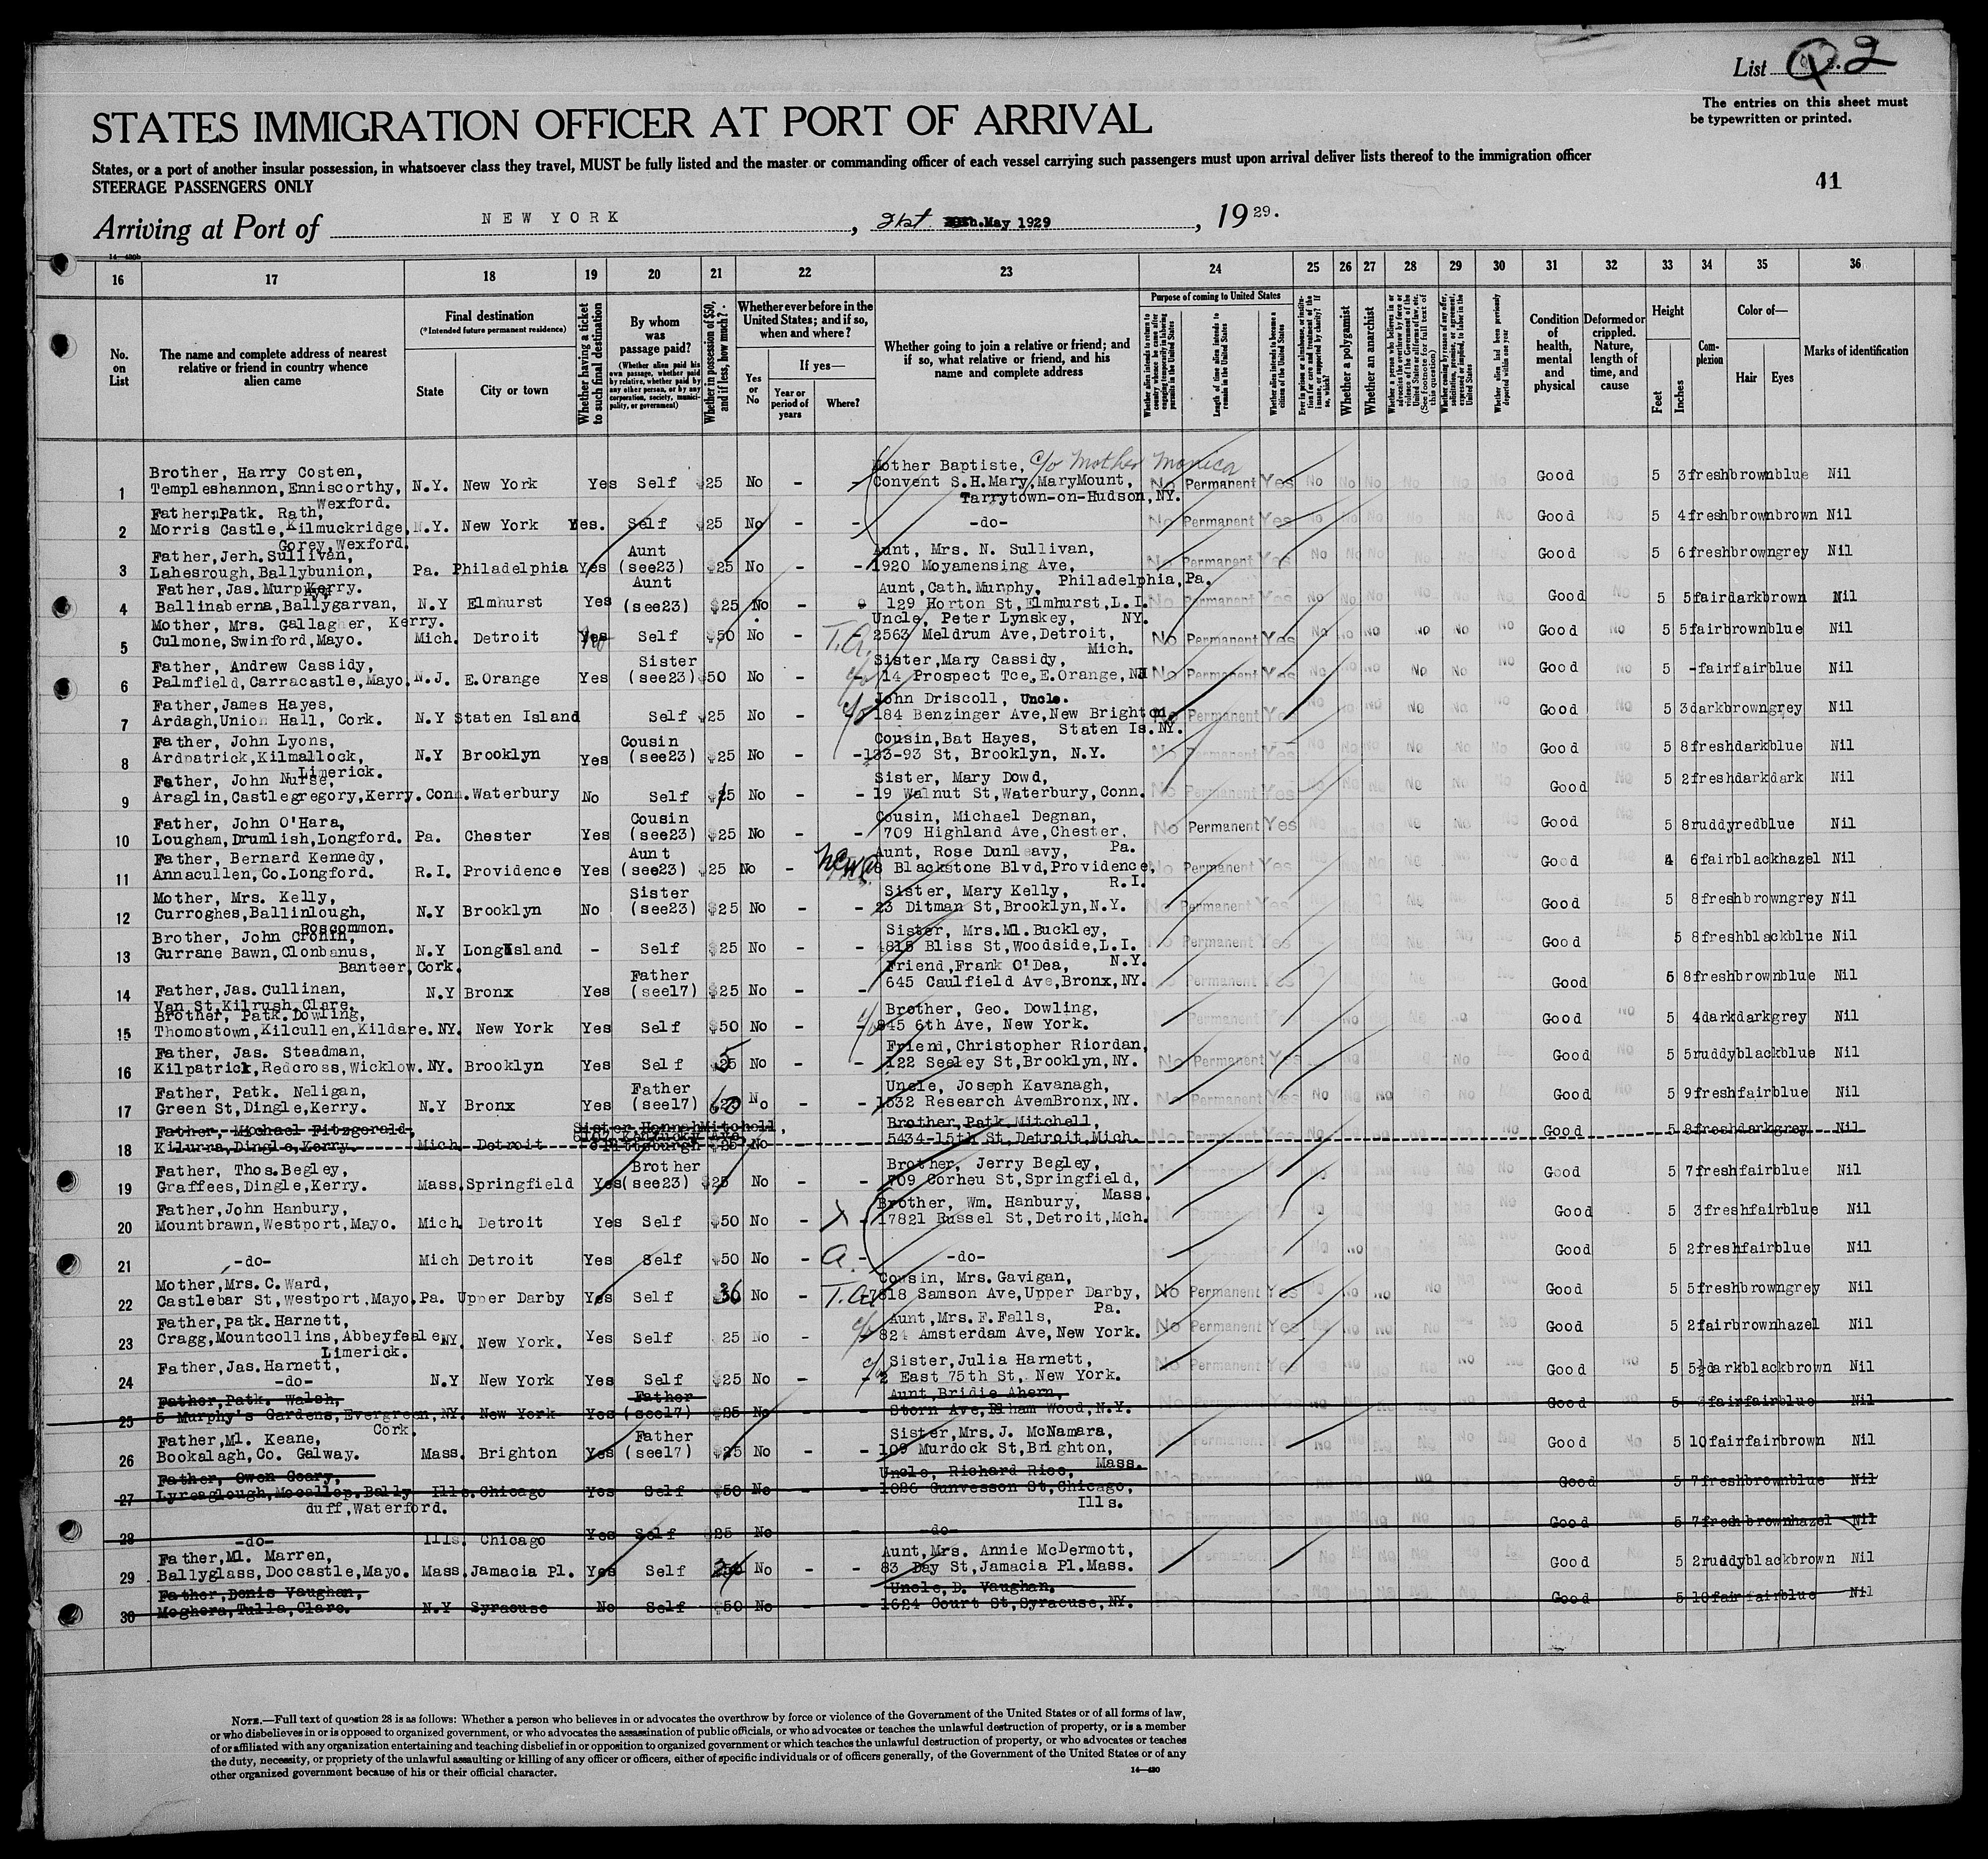 List 2
The entries on this sheet must
be typewritten or printed.
STATES IMMIGRATION OFFICER AT PORT OF ARRIVAL
States, or a port of another insular possession, in whatsoever class they travel, MUST be fully listed and the master or commanding officer of each vessel carrying such passengers must upon arrival deliver lists thereof to the immigration officer
STEERAGE PASSENGERS ONLY
41
Arriving at Port of NEW YORK, 31st May 1929, 1929.
16 17 18 19 20 21 22 23 24 25 26 27 28 29 30 31 32 33 34 35 36
No. on List
The name and complete address of nearest relative or friend in country whence alien came
Final destination
(*Intended future permanent residence)
State
City or town
Whether having a ticket to such final destination
By whom was passage paid?
(Whether alien paid his own passage, whether paid by relative, whether paid by any other person, or by any corporation, society, municipality, or government)
Whether in possession of $50, and if less, how much?
Whether ever before in the United States; and if so, when and where?
Yes or No
If yes—
Year or period of years
Where?
Whether going to join a relative or friend; and if so, what relative or friend, and his name and complete address
Purpose of coming to United States
Length of time alien intends to remain in the United States
Whether alien intends to become a citizen of the United States
Whether a polygamist
Whether an anarchist
Whether alien had been previously deported within one year
Condition of health, mental and physical
Deformed or crippled. Nature, length of time, and cause
Height
Feet
Inches
Complexion
Color of—
Hair
Eyes
Marks of identification
1 Brother, Harry Costen, Mother Baptiste, c/o Mother Monica
Templeshannon, Enniscorthy, N.Y. New York Yes Self $25 No - - Convent S.H.Mary, MaryMount, No Permanent Yes No No No No No No Good No 5 3 fresh brown blue Nil
Wexford. Tarrytown-on-Hudson, NY.
2 Father, Patk. Rath,
Morris Castle, Kilmuckridge, N.Y. New York Yes. Self $25 No - - -do- No Permanent Yes No No No No No No Good No 5 4 fresh brown brown Nil
Gorey, Wexford.
3 Father, Jerh. Sullivan, Aunt Aunt, Mrs. N. Sullivan,
Lahesrough, Ballybunion, Pa. Philadelphia Yes (see23) $25 No - - 1920 Moyamensing Ave, No Permanent Yes No No No No No No Good No 5 6 fresh brown grey Nil
Kerry. Philadelphia, Pa.
4 Father, Jas. Murphy, Aunt Aunt, Cath. Murphy,
Ballinaberna, Ballygarvan, N.Y Elmhurst Yes (see23) $25 No - - 129 Horton St, Elmhurst, L.I. No Permanent Yes No No No No No No Good No 5 5 fair dark brown Nil
Kerry. NY.
5 Mother, Mrs. Gallagher, Uncle, Peter Lynskey,
Culmone, Swinford, Mayo. Mich. Detroit No Self $50 No - T.A. 2563 Meldrum Ave, Detroit, No Permanent Yes No No No No No No Good No 5 5 fair brown blue Nil
Mich.
6 Father, Andrew Cassidy, Sister Sister, Mary Cassidy,
Palmfield, Carracastle, Mayo. N.J. E.Orange Yes (see23) $50 No - c/o 14 Prospect Tce, E.Orange, NJ No Permanent Yes No No No No No No Good No 5 - fair fair blue Nil
7 Father, James Hayes, John Driscoll, Uncle.
Ardagh, Union Hall, Cork. N.Y Staten Island Self $25 No - c/o 184 Benzinger Ave, New Brighton, No Permanent Yes No No No No No No Good No 5 3 dark brown grey Nil
Staten Is. NY.
8 Father, John Lyons, Cousin Cousin, Bat Hayes,
Ardpatrick, Kilmallock, N.Y Brooklyn Yes (see23) $25 No - - 133-93 St, Brooklyn, N.Y. No Permanent Yes No No No No No No Good No 5 8 fresh dark blue Nil
Limerick.
9 Father, John Nurse, Sister, Mary Dowd,
Araglin, Castlegregory, Kerry. Conn. Waterbury No Self $25 No - - 19 Walnut St, Waterbury, Conn. No Permanent Yes No No No No No No Good No 5 2 fresh dark dark Nil
10 Father, John O'Hara, Cousin Cousin, Michael Degnan,
Lougham, Drumlish, Longford. Pa. Chester Yes (see23) $25 No - - 709 Highland Ave, Chester. No Permanent Yes No No No No No No Good No 5 8 ruddy red blue Nil
Pa.
11 Father, Bernard Kennedy, Aunt Aunt, Rose Dunleavy,
Annacullen, Co.Longford. R.I. Providence Yes (see23) $25 No - 8 Blackstone Blvd, Providence, No Permanent Yes No No No No No No Good No 4 6 fair black hazel Nil
R.I.
12 Mother, Mrs. Kelly, Sister Sister, Mary Kelly,
Curroghes, Ballinlough, N.Y Brooklyn No (see23) $25 No - - 23 Ditman St, Brooklyn, N.Y. No Permanent Yes No No No No No No Good No 5 8 fresh brown grey Nil
Roscommon.
13 Brother, John Cronin, Sister, Mrs.Ml. Buckley,
Gurrane Bawn, Clonbanus, N.Y Long Island - Self $25 No - - 4815 Bliss St, Woodside, L.I. No Permanent Yes No No No No No No Good No 5 8 fresh black blue Nil
Banteer, Cork. N.Y.
14 Father, Jas. Cullinan, Father Friend, Frank O'Dea,
Van St, Kilrush, Clare. N.Y Bronx Yes (see17) $25 No - - 645 Caulfield Ave, Bronx, NY. No Permanent Yes No No No No No No Good No 5 8 fresh brown blue Nil
15 Brother, Patk. Dowling, Brother, Geo. Dowling,
Thomostown, Kilcullen, Kildare. NY. New York Yes Self $50 No - c/o 845 6th Ave, New York. No Permanent Yes No No No No No No Good No 5 4 dark dark grey Nil
16 Father, Jas. Steadman, Friend, Christopher Riordan,
Kilpatrick, Redcross, Wicklow. NY. Brooklyn Yes Self 5 No - - 122 Seeley St, Brooklyn, NY. No Permanent Yes No No No No No No Good No 5 5 ruddy black blue Nil
17 Father, Patk. Neligan, Father Uncle, Joseph Kavanagh,
Green St, Dingle, Kerry. N.Y Bronx Yes (see17) 60 No - - 1532 Research AvemBronx, NY. No Permanent Yes No No No No No No Good No 5 9 fresh fair blue Nil
18 Father, Michael Fitzgerald, Sister HannahMitchell, Brother, Patk Mitchell,
Kilurna, Dingle, Kerry. Mich Detroit Pittsburgh $25 No - - 5434-15th St, Detroit, Mich. Good 5 8 fresh dark grey Nil
19 Father, Thos. Begley, Brother Brother, Jerry Begley,
Graffees, Dingle, Kerry. Mass. Springfield Yes (see23) $25 No - - 709 Corheu St, Springfield, No Permanent Yes No No No No No No Good No 5 7 fresh fair blue Nil
Mass.
20 Father, John Hanbury, Brother, Wm. Hanbury,
Mountbrawn, Westport, Mayo. Mich Detroit Yes Self $50 No - X - 17821 Russel St, Detroit, Mch. No Permanent Yes No No No No No No Good No 5 3 fresh fair blue Nil
21 -do- Mich Detroit Yes Self $50 No - a. - -do- No Good 5 2 fresh fair blue Nil
22 Mother, Mrs. C. Ward, Cousin, Mrs. Gavigan,
Castlebar St, Westport, Mayo. Pa. Upper Darby Yes Self 36 No - T.A. 7818 Samson Ave, Upper Darby, No Permanent Yes No No No No Good 5 5 fresh brown grey Nil
Pa.
23 Father, patk. Harnett, Aunt, Mrs. F. Falls,
Cragg, Mountcollins, Abbeyfeale NY. New York. Yes Self 25 No - c/o 824 Amsterdam Ave, New York. No Permanent Yes No No No No No No Good 5 2 fair brown hazel Nil
Limerick.
24 Father, Jas. Harnett, Sister, Julia Harnett,
-do- N.Y New York Yes Self $25 No - c/o 2 East 75th St, New York. No Permanent Yes No No No No No No Good No 5 5½ dark black brown Nil
25 Father, Patk. Walsh, Father Aunt, Bridie Ahern,
5 Murphy's Gardens, Evergreen, NY. New York Yes (see17) $25 No Storn Ave, Elham Wood, N.Y. Good 5 fair fair blue Nil
Cork.
26 Father, Ml. Keane, Father Sister, Mrs. J. McNamara,
Bookalagh, Co. Galway. Mass. Brighton Yes (see17) $25 No - - 109 Murdock St, Brighton, No Permanent Yes No No No No No No Good No 5 10 fair fair brown Nil
Mass.
27 Father, Owen Geary, Uncle, Richard Rice,
Lyreaglough, Mocollop. Bally Ills. Chicago Yes Self $50 No - - 1026 Gunvesson St, Chicago, Good 5 7 fresh brown blue Nil
duff, Waterford. Ills.
28 -do- Ills. Chicago Yes Self $25 No - -do- Good 5 7 fresh brown hazel Nil
29 Father, Ml. Marren, Aunt, Mrs. Annie McDermott,
Ballyglass, Doocastle, Mayo. Mass. Jamacia Pl. Yes Self No - - 83 Day St, Jamacia Pl. Mass. No Permanent Yes No No No No No No Good No 5 2 ruddy black brown Nil
30 Father, Denis Vaughan, Uncle, D. Vaughan.
Moghera, Tulla, Clare. N.Y Syracuse No Self $50 No - - 1624 Court St, Syracuse, NY. Good 5 10 fair fair blue Nil
NOTE.—Full text of question 28 is as follows: Whether a person who believes in or advocates the overthrow by force or violence of the Government of the United States or of all forms of law,
or who disbelieves in or is opposed to organized government, or who advocates the assassination of public officials, or who advocates or teaches the unlawful destruction of property, or is a member
of or affiliated with any organization entertaining and teaching disbelief in or opposition to organized government or which teaches the unlawful destruction of property, or who advocates or teaches
the duty, necessity, or propriety of the unlawful assaulting or killing of any officer or officers, either of specific individuals or of officers generally, of the Government of the United States or of any
other organized government because of his or their official character.
14—480